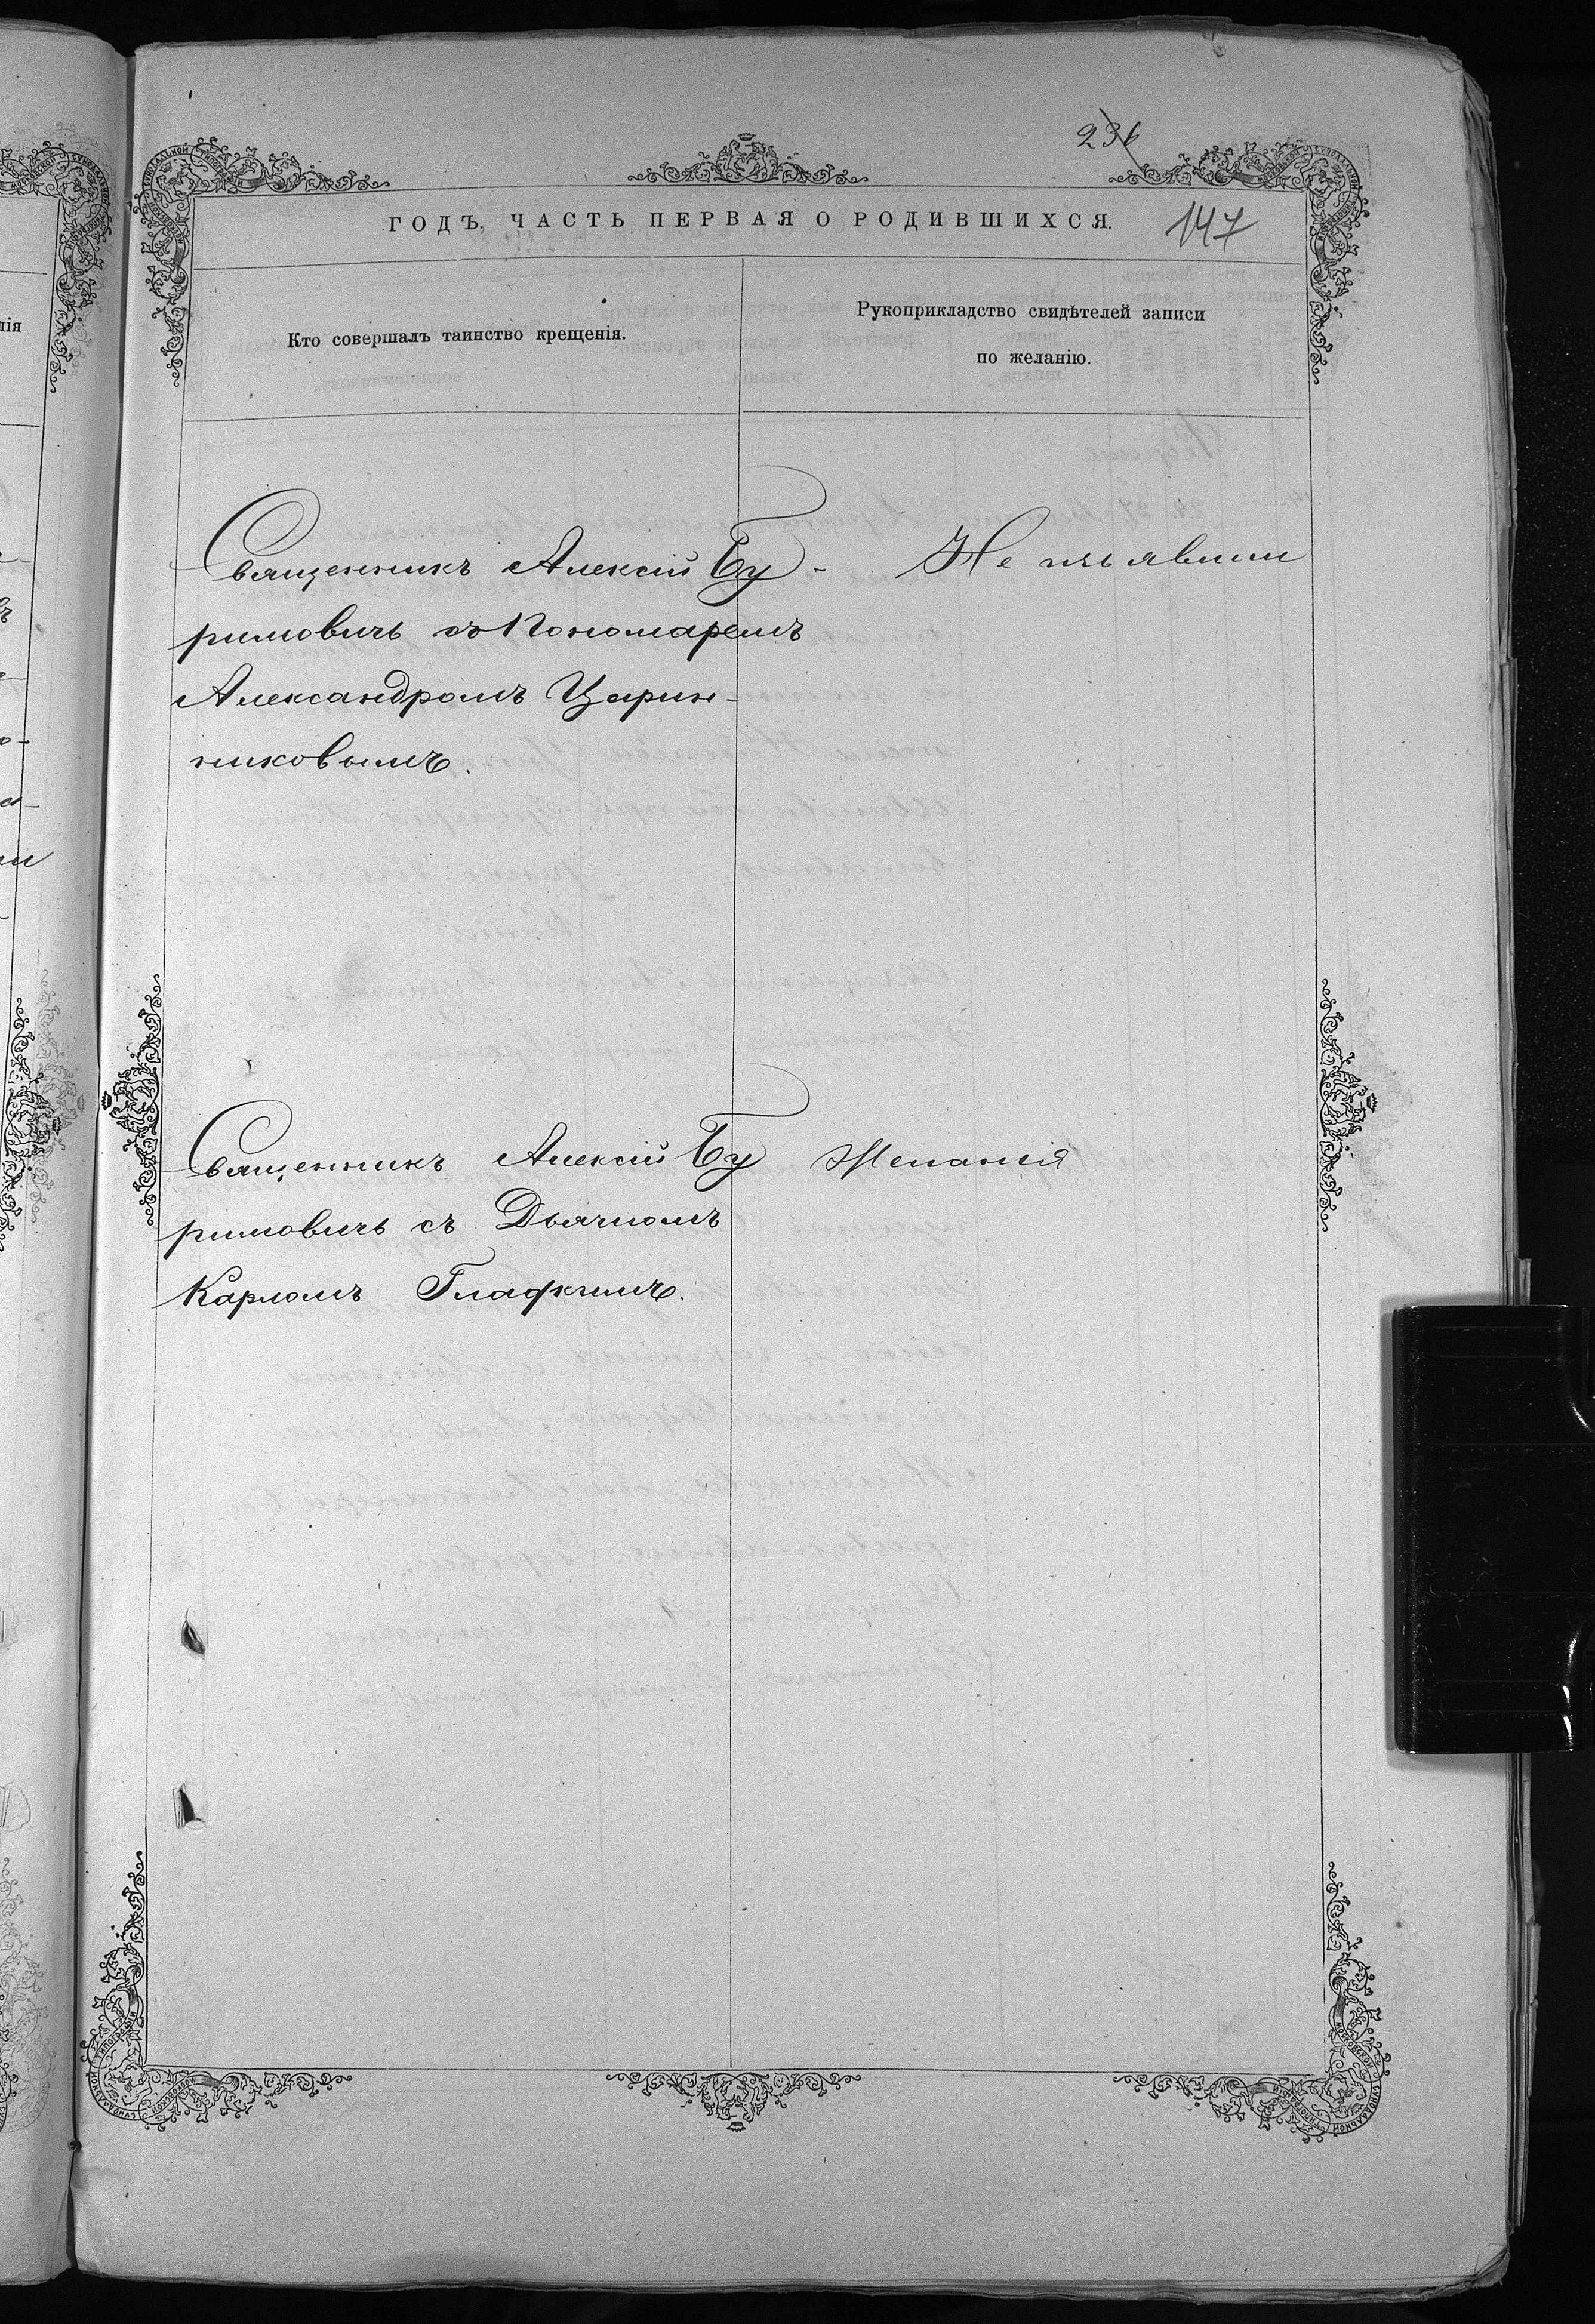 236
147
ГОДЪ, ЧАСТЬ ПЕРВАЯ О РОДИВШИХСЯ.
Кто совершалъ таинство крещенія.
Рукоприкладство свидѣтелей записи
по желанію.
Священникъ Алексій Бу-
римовичъ съ Пономаремъ
Александромъ Царин-
никовымъ.
Не изъявили
Священникъ Алексій Бу
римовичъ съ Дьячкомъ
Карпомъ
Желанія